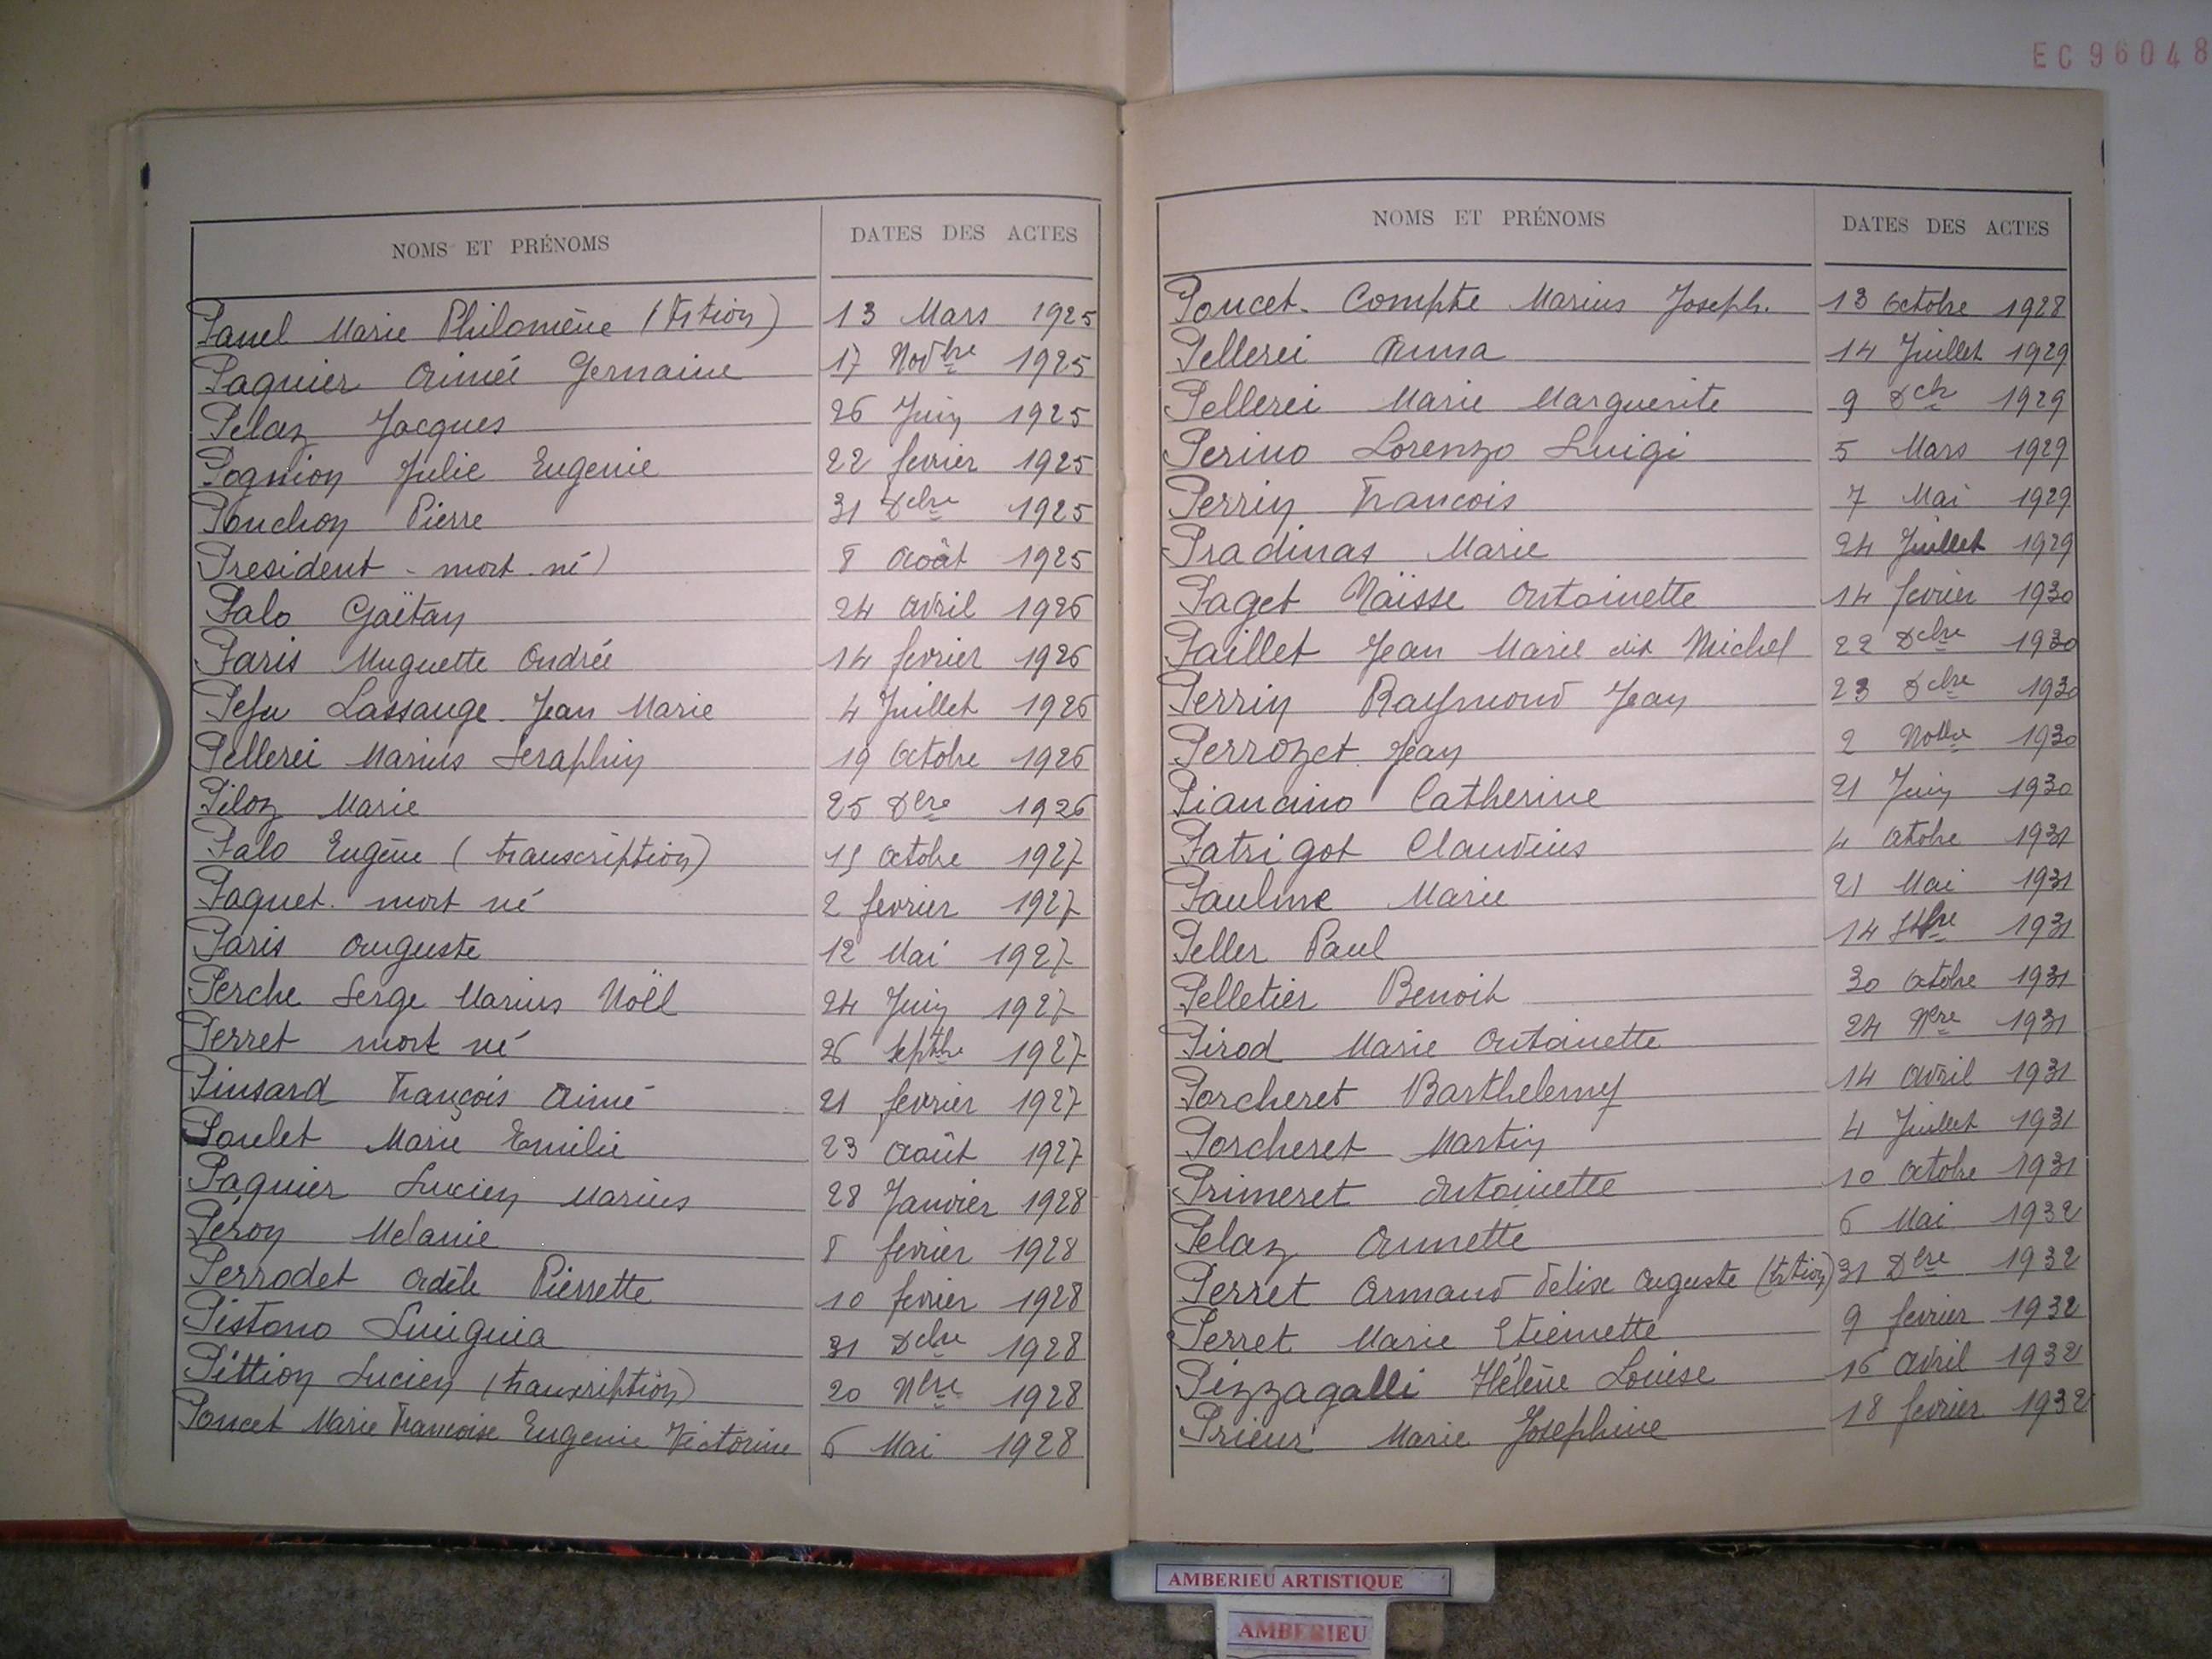 EC96048
NOMS ET PRÉNOMS DATES DES ACTES
Panel Marie Philomène (trtion) 13 Mars 1925
Paquier Aimée Germaine 17 Novbre 1925
Pelaz Jacques 26 Juin 1925
Pognion Julie Eugenie 22 fevrier 1925
Ponchon Pierre 31 Dcbre 1925
President - mort né) 8 Août 1925
Palo Gaëtan 24 avril 1926
Paris Muguette Andrée 14 fevrier 1926
Pefu Lassauge. Jean Marie 4 Juillet 1926
Pellerei Marius Seraphin 19 Octobre 1926
Piloz Marie 25 Dbre 1926
Palo Eugène (transcription) 19 octobre 1927
Paquet. mort né 2 fevrier 1927
Paris Auguste 12 Mai 1927
Perche Serge Marius Noël 24 Juin 1927
Perret mort né 26 Septbre 1927
Pinsard François Aimé 21 fevrier 1927
Poulet Marie Emilie 23 Août 1927
Paquier Lucien Marius 28 Janvier 1928
Peron Melanie 8 fevrier 1928
Perrodet Adèle Pierrette 10 fevrier 1928
Pistono Luiguia 31 Dcbre 1928
Pittion Lucien (transcription) 20 Nbre 1928
Poncet Marie Francoise Eugenie Victorine 6 Mai 1928
NOMS ET PRÉNOMS DATES DES ACTES
Poncet. Compte Marius Joseph. 13 Octobre 1928
Pellerei Anna 14 Juillet 1929
Pellerei Marie Marguerite 9 Dcb 1929
Perino Lorenzo Luigi 5 Mars 1929
Perrin Francois 7 Mai 1929
Pradinas Marie 24 Juillet 1929
Paget Naïsse Antoinette 14 fevrier 1930
Paillet Jean Marie dit Michel 22 Dcbre 1930
Perrin Raymond Jean 23 Dcbre 1930
Perrozet Jean 2 Novbre 1930
Piancino Catherine 21 Juin 1930
Patrigot Claudius 4 Octobre 1931
Pauline Marie 21 Mai 1931
Peller Paul 14 1931
Pelletier Benoit 30 Octobre 1931
Pirod Marie Antoinette 24 Nbre 1931
Porcheret Barthelemy 14 Avril 1931
Porcheret Martin 4 Juillet 1931
Primeret Antoinette 10 Octobre 1931
Pelaz Annette 6 Mai 1932
Perret Armand Felix Auguste (trtion) 31 Dbre 1932
Perret Marie Etiennette 9 fevrier 1932
Pizzagalli Hélène Louise 16 Avril 1932
Prieur Marie Josephine 18 fevrier 1932
AMBERIEU ARTISTIQUE
AMBERIEU